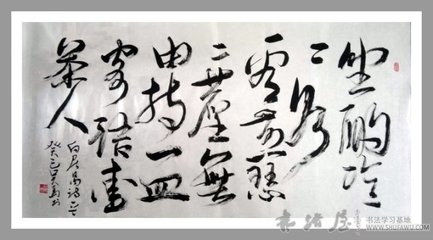 坐酌泠
〻水
看煎瑟
〻塵無
由持一
寄愛
茶人
白居易詩
癸巳
书法屋
书法学习基地
WWW.SHUFAWU.COM